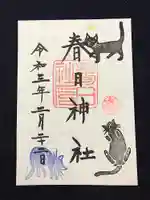 春日神社
令和三年二月二十二日